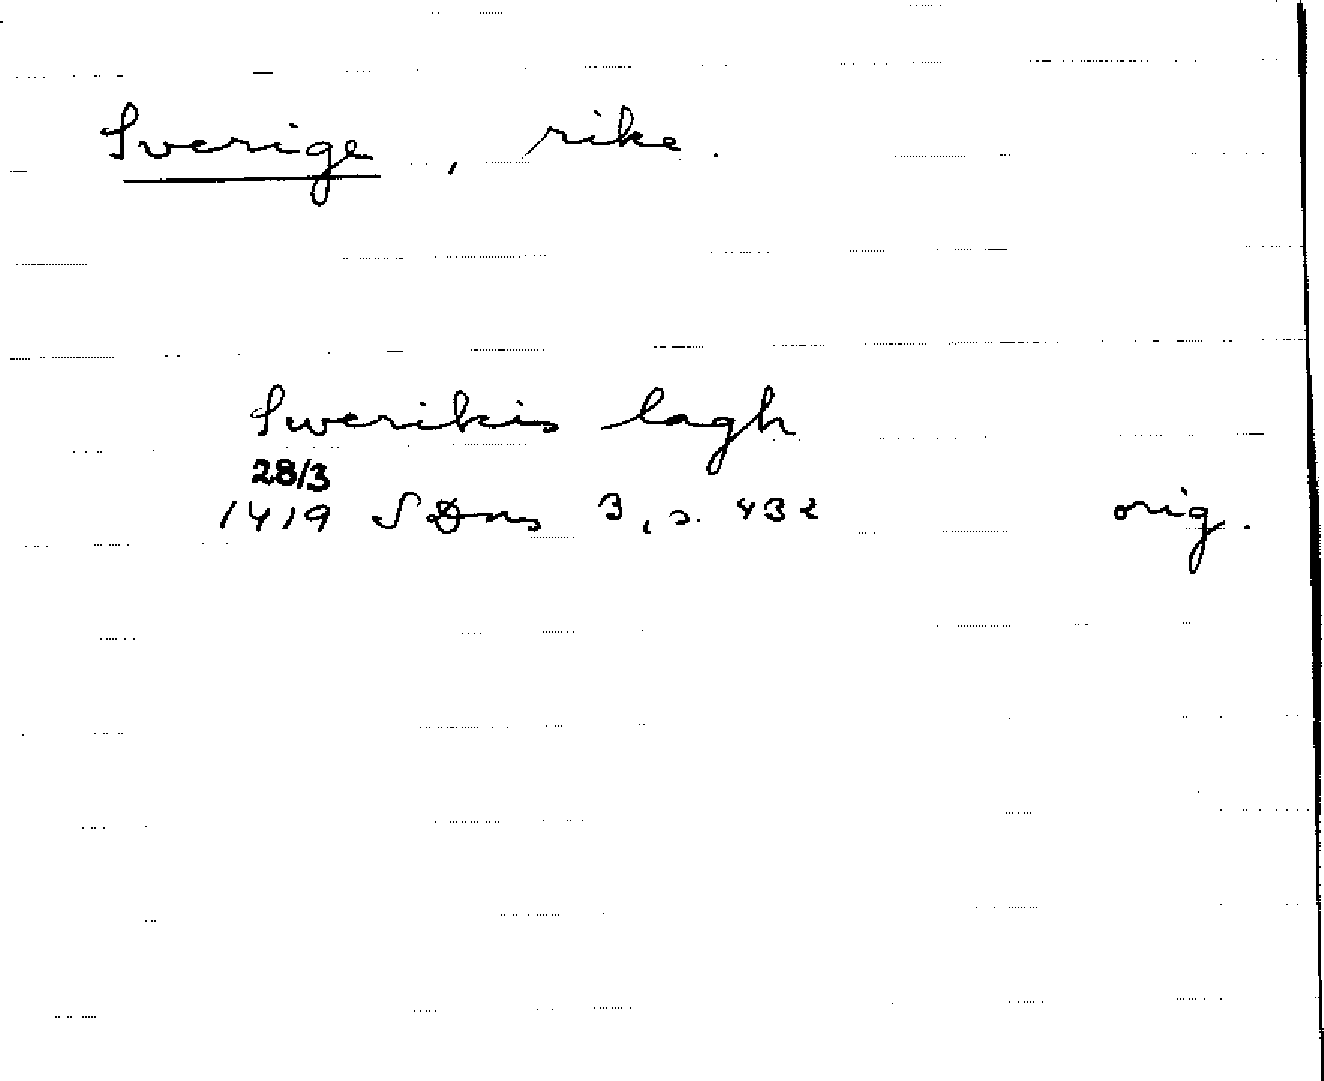 Sverige, rike.
Swerikis lagh
28/3
1419 SDns 3, s. 432 orig.